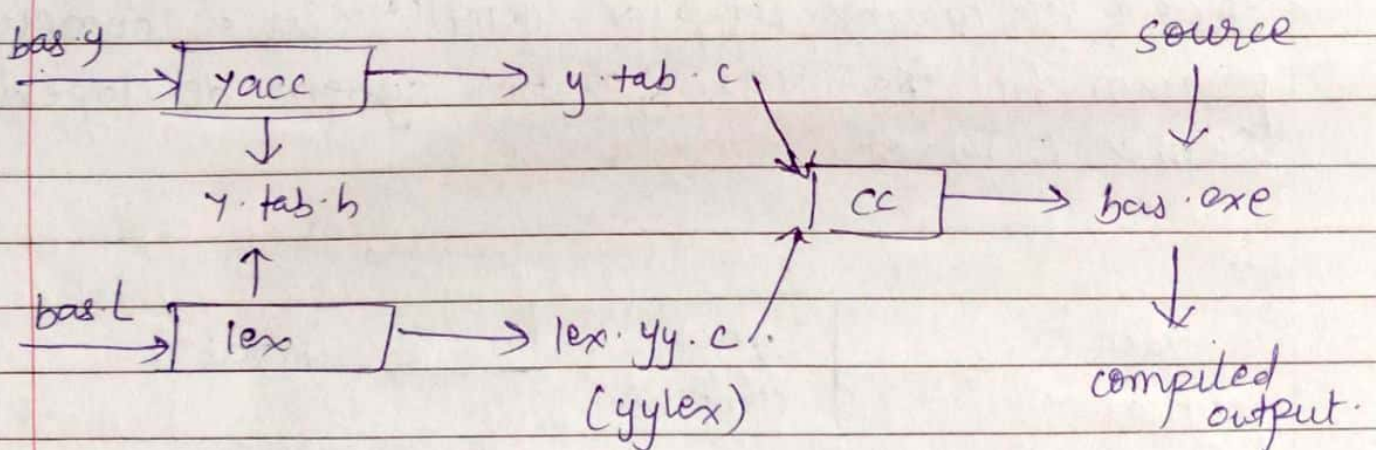 bas.y
yacc
y.tab.c
source
y.tab.h
cc
bas.exe
bas.l
lex
lex.yy.c
(yylex)
compiled
output.